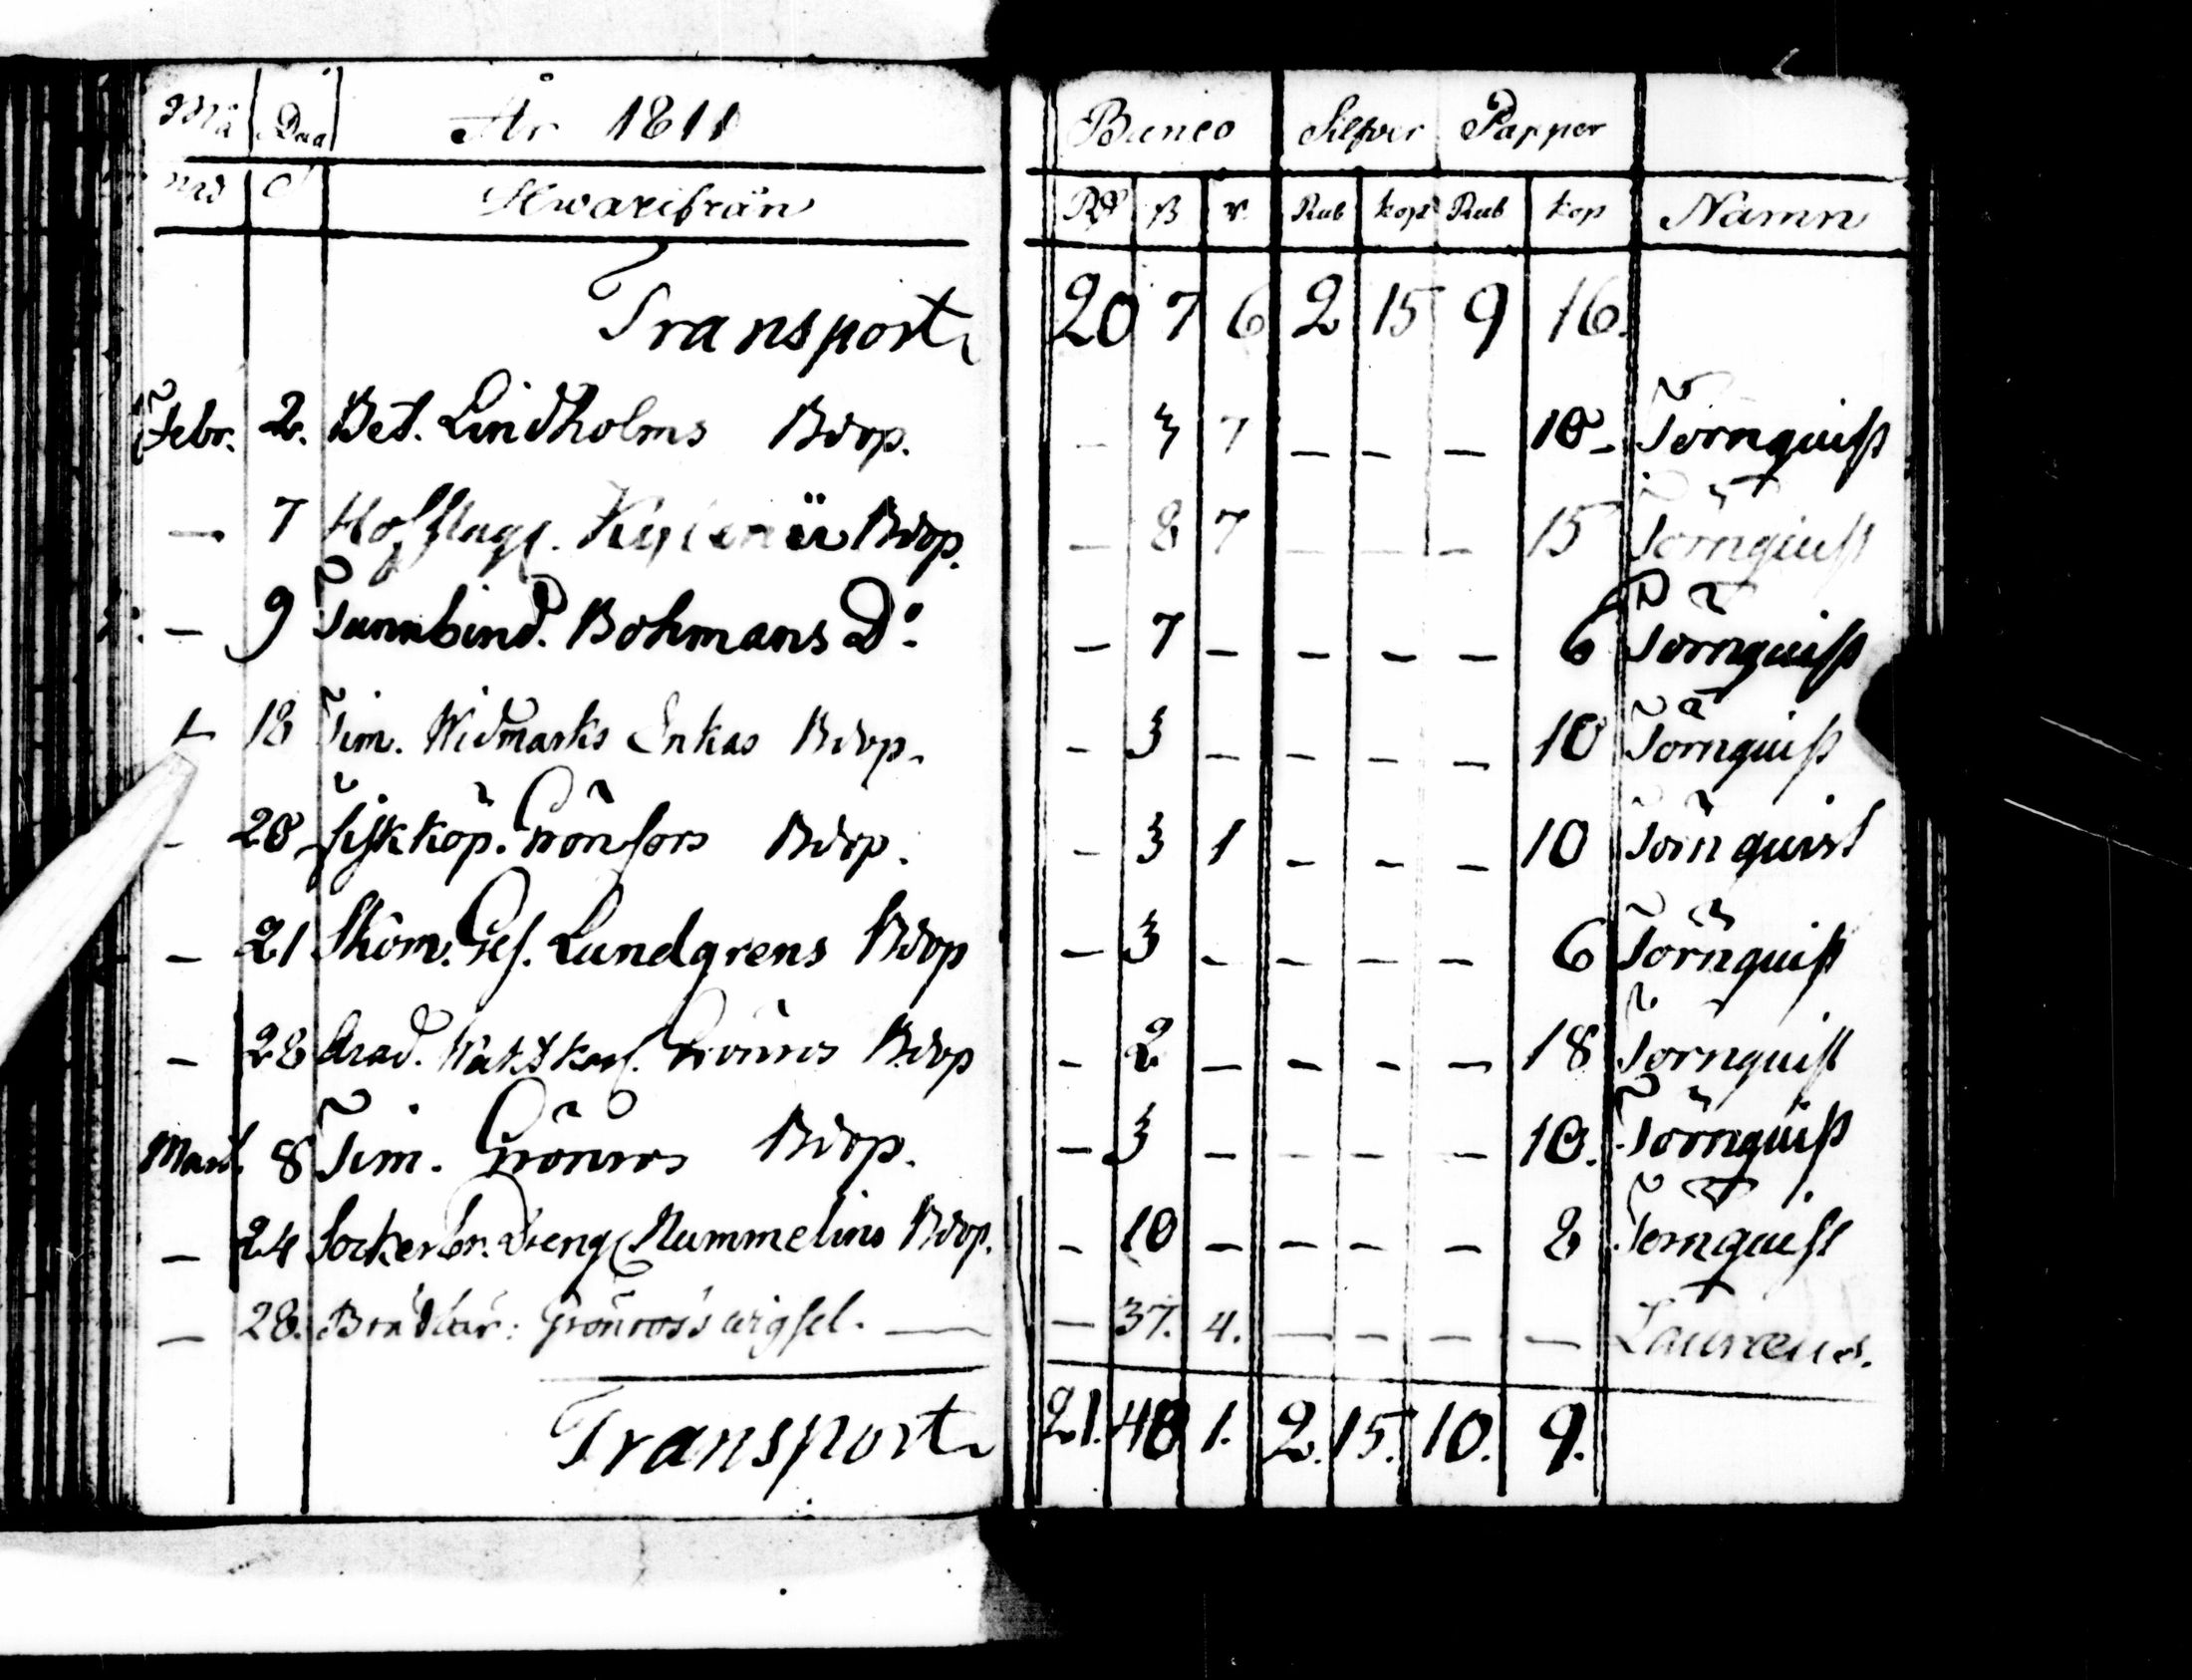 Må Dag År 1811 Banco Silfver Papper
nad Hwarifrån Rd ß r. Rub kop Rub kop Namn
Transport 20 7 6 2 15 9 16.
Febr. 2. Bet. Lindholms Bdop. – 3 7 – – – 10 – Törnquist
– 7 Bdop. – 8 7 – – – 15 Törnquist
– 9 Tunnbind. Bohmans Do – 7 – – – – 6 Törnquist
– 18 Tim. Widmarks Enkas Bdop. – 3 – – – – 10 Törnquist
– 20 Fiskköp. Grönfors Bdop. – 3 1 – – – 10 Törnquist
– 21 Skom. Ges. Lundgrens Bdop – 3 – – – – 6 Törnquist
– 28 Grönroos Bdop – 2 – – – – 18 Törnquist
Mart. 8 Tim. Grönroos Bdop. – 3 – – – – 10. Törnquist
– 24 Sockerbr. Dreng Nummelins Bdop. – 10 – – – – 8 Törnquist
– 28. Brädbär: Grönroos's wigsel. – – 37. 4. – – – – Laurenus.
Transport 21. 40 1. 2. 15. 10. 9.